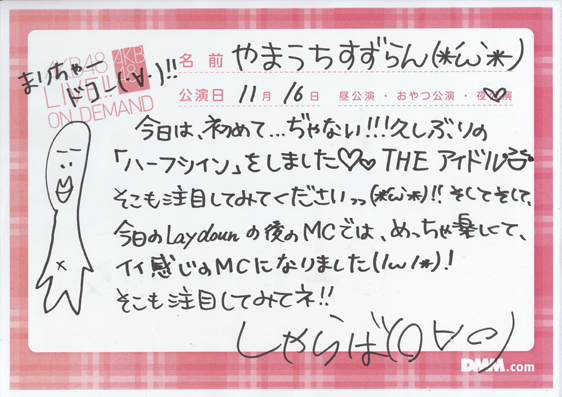 AKB48
LIVE!!
ON DEMAND
AKB
48
まりちゃー
ドコー(・∀・)!!
名前 やまうちすずらん(*´ω`*)
公演日 11月16日 昼公演・おやつ公演・夜公演
今日は、初めて…ぢゃない!!!久しぶりの
「ハーフツイン」をしました♡♡ THE アイドル
そこも注目してみてくださいっっ(*´ω`*)!! そしてそして、
今日のLaydownの後のMCでは、めっちゃ楽しくて、
イイ感じのMCになりました(/ω\*)!
そこも注目してみてネ!!
しゃらば(０∀０)
DMM.com